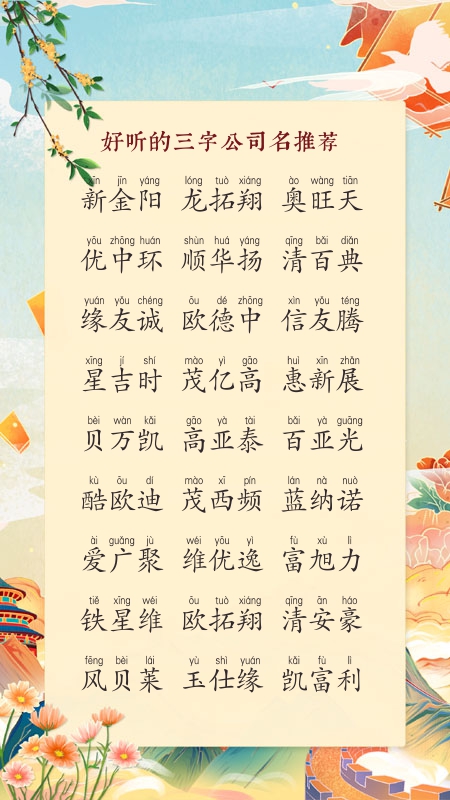 好听的三字公司名推荐
xīn jīn yáng lóng tuò xiáng ào wàng tiān
新金阳 龙拓翔 奥旺天
yōu zhōng huán shùn huá yáng qīng bǎi diǎn
优中环 顺华扬 清百典
yuán yǒu chéng ōu dé zhōng xìn yǒu téng
缘友诚 欧德中 信友腾
xīng jí shí mào yì gāo huì xīn zhǎn
星吉时 茂亿高 惠新展
bèi wàn kǎi gāo yà tài bǎi yà guāng
贝万凯 高亚泰 百亚光
kù ōu dí mào xī pín lán nà nuò
酷欧迪 茂西频 蓝纳诺
ài guǎng jù wéi yōu yì fù xù lì
爱广聚 维优逸 富旭力
tiě xīng wéi ōu tuò xiáng qīng ān háo
铁星维 欧拓翔 清安豪
fēng bèi lái yù shì yuán kǎi fù lì
风贝莱 玉仕缘 凯富利